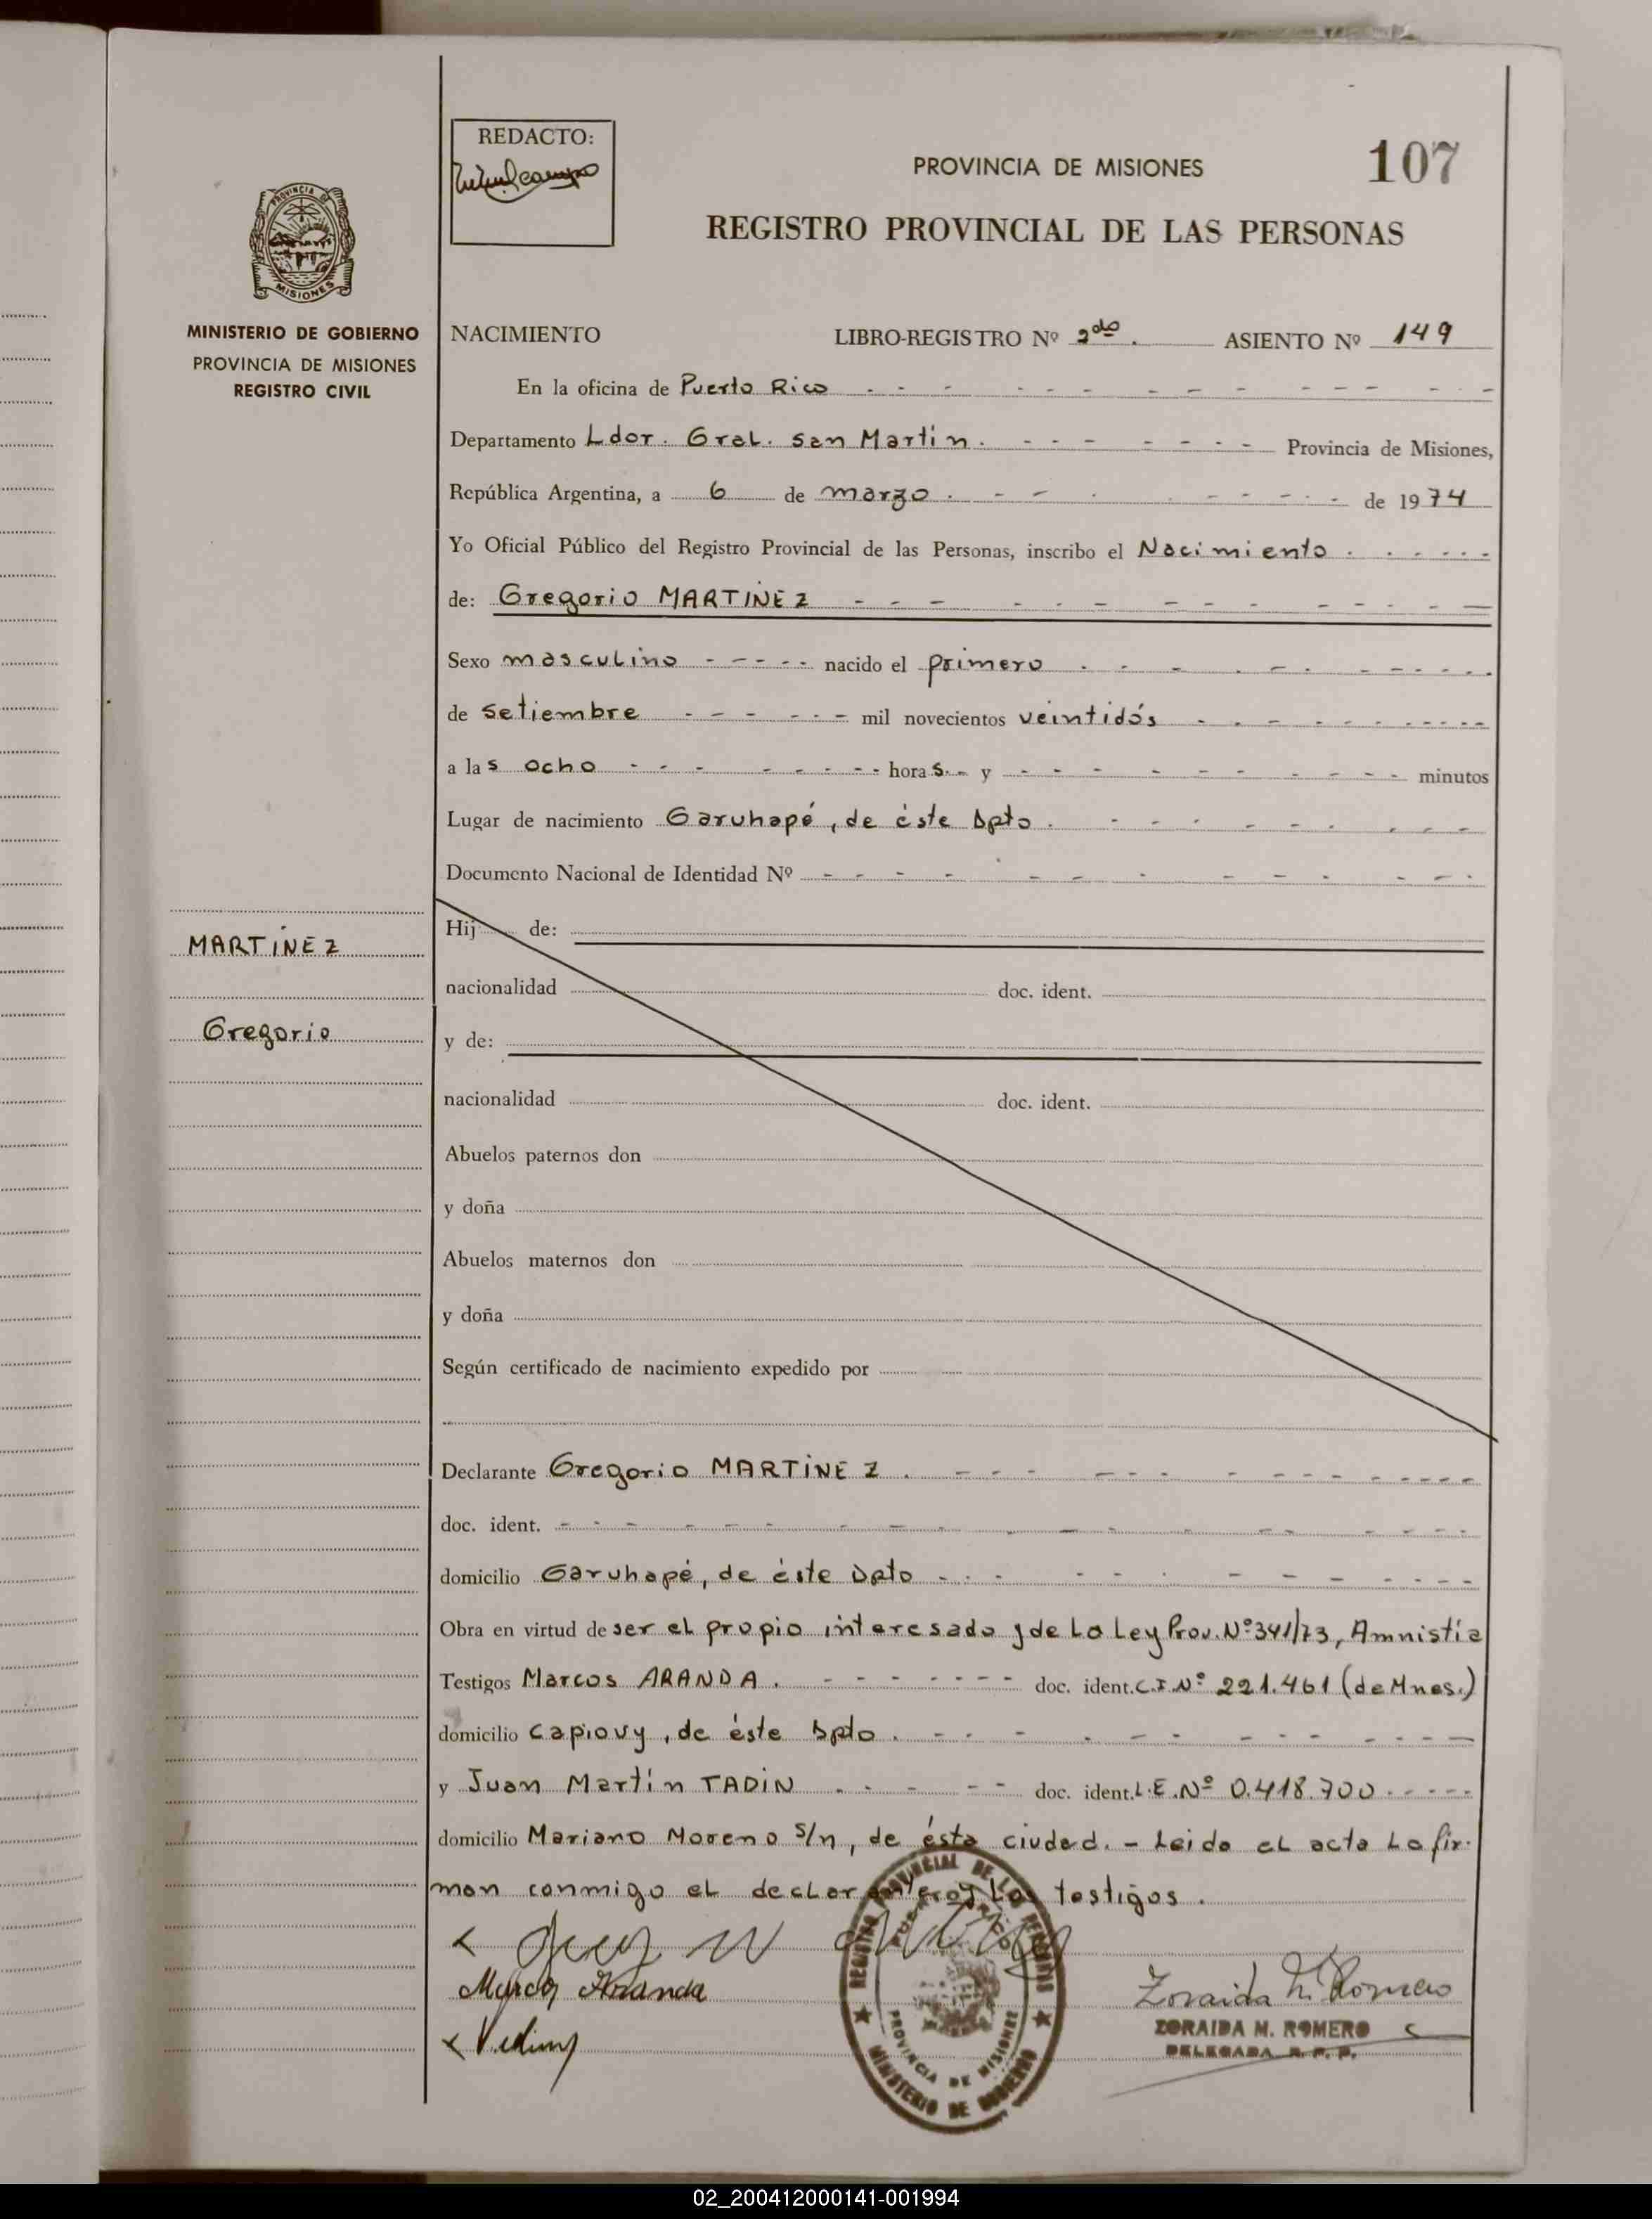 REDACTO:
PROVINCIA DE MISIONES
107
REGISTRO PROVINCIAL DE LAS PERSONAS
PROVINCIA
MISIONES
MINISTERIO DE GOBIERNO
PROVINCIA DE MISIONES
REGISTRO CIVIL
NACIMIENTO LIBRO-REGISTRO Nº 2do. ASIENTO Nº 149
En la oficina de Puerto Rico
Departamento Ldor. Gral. San Martín. Provincia de Misiones,
República Argentina, a 6 de marzo. de 1974
Yo Oficial Público del Registro Provincial de las Personas, inscribo el Nacimiento
de: Gregorio MARTINEZ
Sexo masculino nacido el primero
de setiembre mil novecientos veintidós
a las ocho horas. y minutos
Lugar de nacimiento Garuhapé, de éste Dpto.
Documento Nacional de Identidad Nº
MARTINEZ
Gregorio
Hij de:
nacionalidad doc. ident.
y de:
nacionalidad doc. ident.
Abuelos paternos don
y doña
Abuelos maternos don
y doña
Según certificado de nacimiento expedido por
Declarante Gregorio MARTINEZ.
doc. ident.
domicilio Garuhapé, de éste Dpto
Obra en virtud de ser el propio interesado y de la Ley Prov. Nº 341/73, Amnistía
Testigos Marcos ARANDA. doc. ident. C.I. Nº 221.461 (de Mnes.)
domicilio Capiovy, de éste Dpto.
y Juan Martín TADIN doc. ident. L.E. Nº 0.418.700
domicilio Mariano Moreno S/n, de ésta ciudad. - Leida el acta la fir-
man conmigo el declarante y los testigos.
Marcos Aranda
Zoraida M. Romero
ZORAIDA M. ROMERO
DELEGADA R. P. P.
REGISTRO PROVINCIAL DE LAS PERSONAS
PUERTO RICO
PROVINCIA DE MISIONES
MINISTERIO DE GOBIERNO
02_200412000141-001994